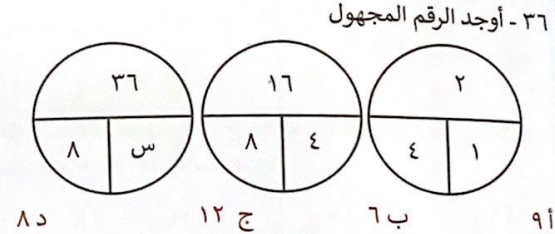 ٣٦ - أوجد الرقم المجهول
٢ ١٦ ٣٦
١ ٤ ٤ ٨ س ٨
أ ٩ ب ٦ ج ١٢ د ٨